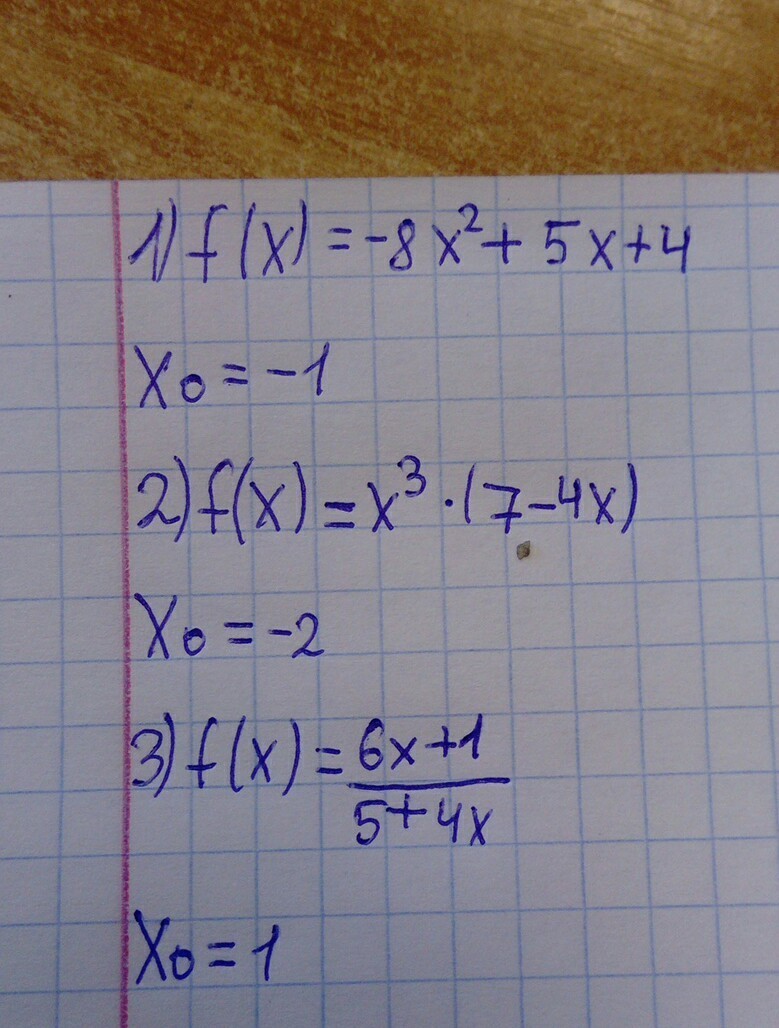 1) f(x) = -8x² + 5x + 4
x₀ = -1
2) f(x) = x³ · (7 - 4x)
x₀ = -2
3) f(x) = 6x + 1
5 + 4x
x₀ = 1